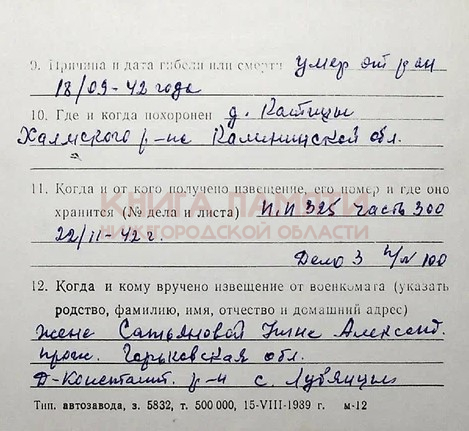 9. Причина и дата гибели или смерти умер от ран
18/09-42 года
10. Где и когда похоронен д. Катицы
Халмского р-на Калининской обл.
11. Когда и от кого получено извещение, его номер и где оно
хранится (№ дела и листа) П.П 325 часть 300
КНИГА ПАМЯТИ
НИЖЕГОРОДСКОЙ ОБЛАСТИ
22/II-42 г.
Дело 3 п/№ 100
12. Когда и кому вручено извещение от военкомата (указать
родство, фамилию, имя, отчество и домашний адрес)
жене Александ.
прож. Горьковская обл.
Д-Констант 

р-н с. Лубянцы
Тип. автозавода, з. 5832, т. 500 000, 15-VIII-1989 г. м-12